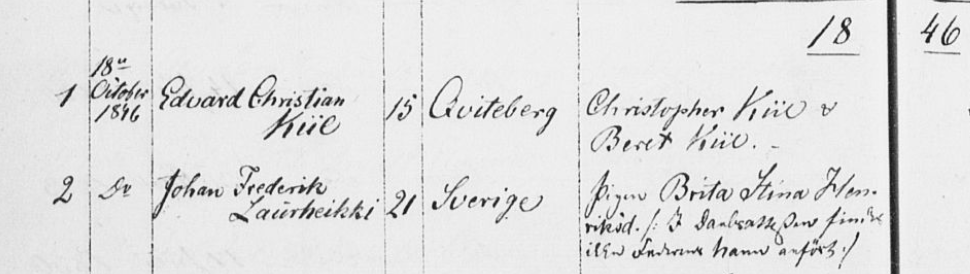 18 46
18de
1 October Edvard Christian 15 Qviteberg Christopher Kiil &
1846 Kiil Beret Kiil. -
2 Do Johan Frederik 21 Sverige Pigen Brita Stina Hen-
Laurheikki riksd. /: I Daabsattesten findes
ikke Faderens Navn anført :/